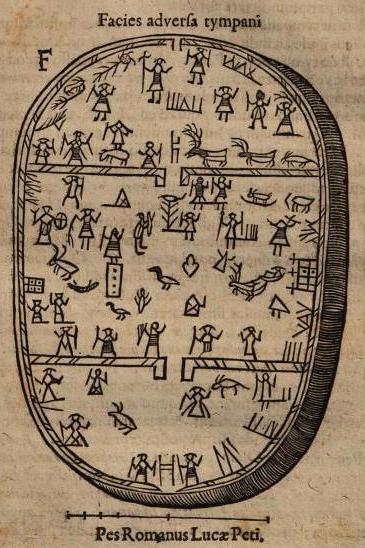 Facies adverſa tympani
F
Pes Romanus Lucæ Peti.